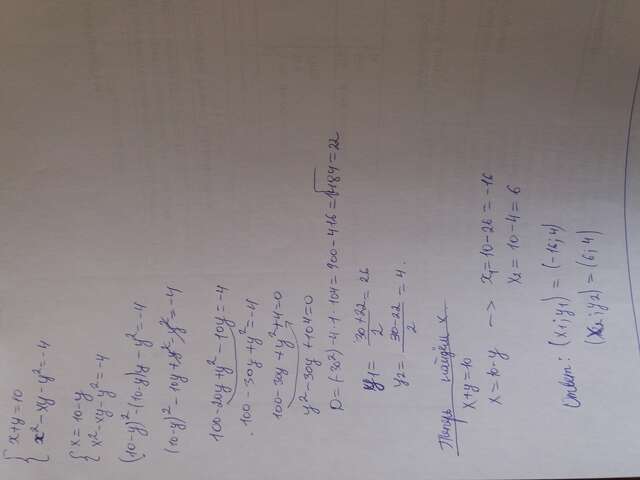 x+y=10
x²-xy-y²=-4
x=10-y
x²-xy-y²=-4
(10-y)²-(10-y)y-y²=-4
(10-y)²-10y+y²-y²=-4
100-20y+y²-10y=-4
100-30y+y²=-4
100-30y+y²+4=0
y²-30y+104=0
D=(-30²)-4·1·104=900-416=√484=22
y1=30+22/2=26
y2=30-22/2=4.
Теперь найдём x
x+y=10
x=10-y -> x1=10-26=-16
x2=10-4=6
Ответ: (x1;y1)=(-16;4)
(x2;y2)=(6;4)